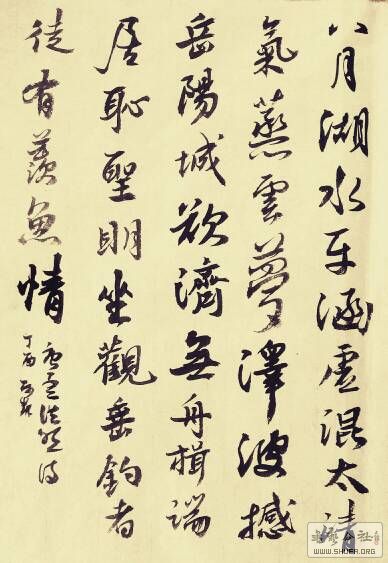 八月湖水平涵虛混太清
氣蒸雲夢澤波撼
岳陽城欲濟無舟楫端
居恥聖明坐觀垂釣者
徒有羨魚情
孟浩然詩
丁酉
WWW.SHUFA.ORG